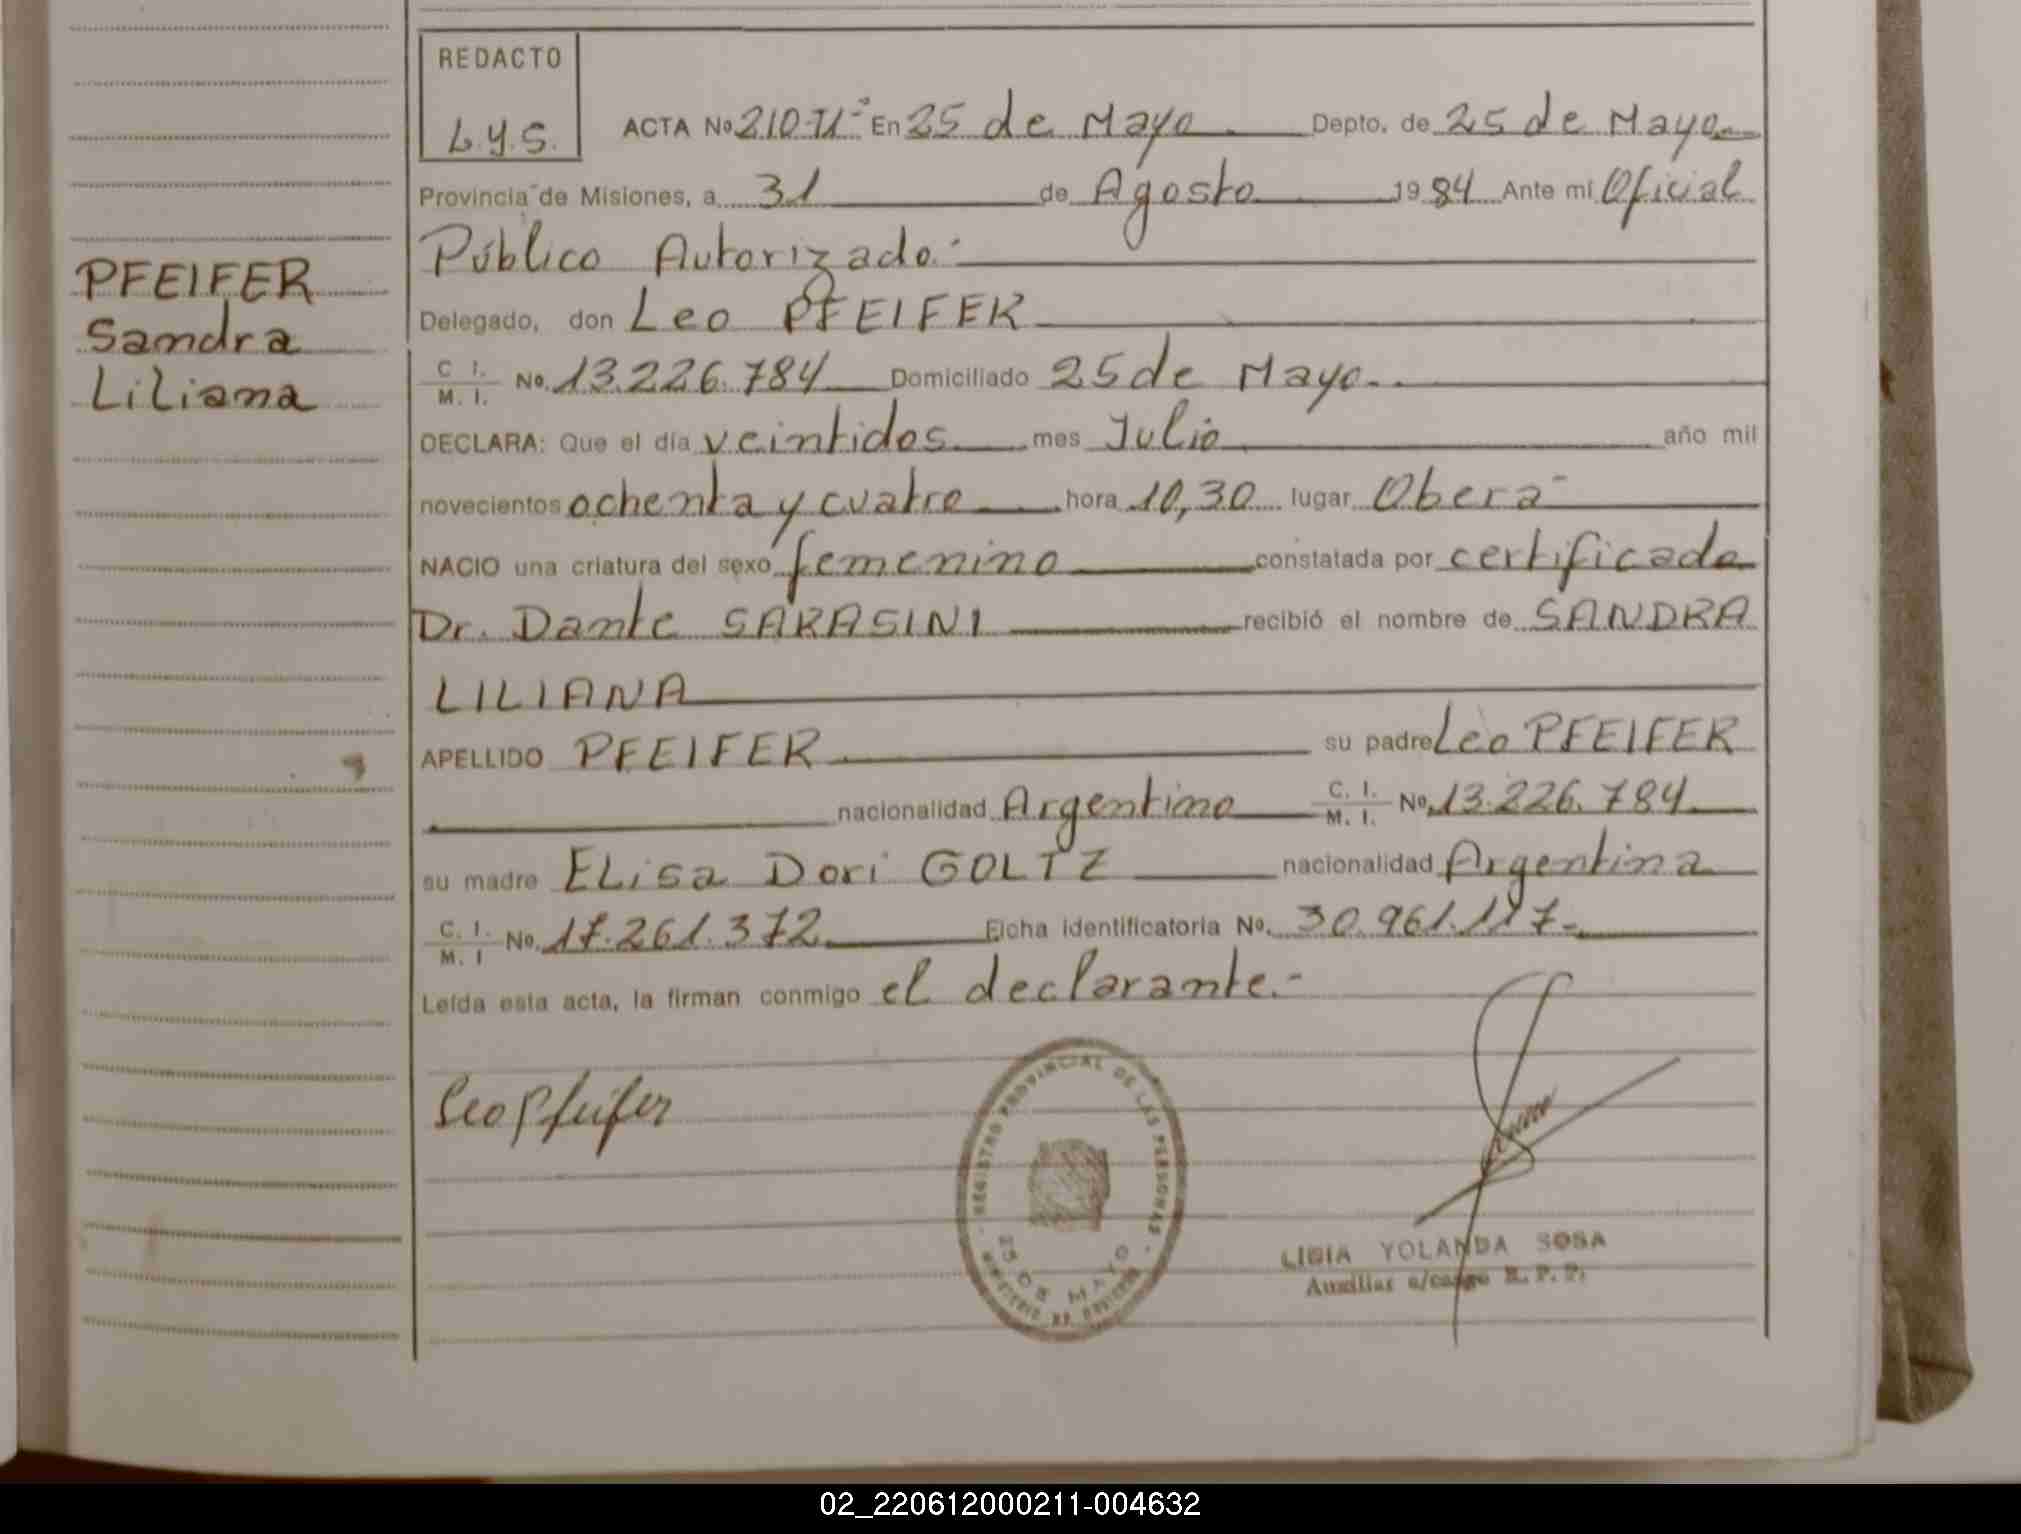 REDACTO
L.y.S.
ACTA No 210-T1ª- En 25 de Mayo Depto. de 25 de Mayo
Provincia de Misiones, a 31 de Agosto 1984 Ante mi Oficial
Público Autorizado.-
Delegado, don Leo PFEIFER
C I. / M. I. No. 13.226.784 Domiciliado 25 de Mayo.-
DECLARA: Que el día veintidos mes Julio año mil
novecientos ochenta y cuatro hora 10,30 lugar Oberá-
NACIO una criatura del sexo femenino constatada por certificado
Dr. Dante SARASINI recibió el nombre de SANDRA
LILIANA
APELLIDO PFEIFER su padre Leo PFEIFER
nacionalidad Argentino C. I. / M. I. No. 13.226.784
su madre ELisa Dori GOLTZ nacionalidad Argentina
C. I. / M. I No. 17.261.372 Ficha identificatoria No. 30.961.117-
Leída esta acta, la firman conmigo el declarante.-
PFEIFER
Sandra
Liliana
Leo Pfeifer
REGISTRO PROVINCIAL DE LAS PERSONAS
25 DE MAYO
MINISTERIO DE GOBIERNO
LIGIA YOLANDA SOSA
Auxiliar a/cargo R. P. P.
02_220612000211-004632